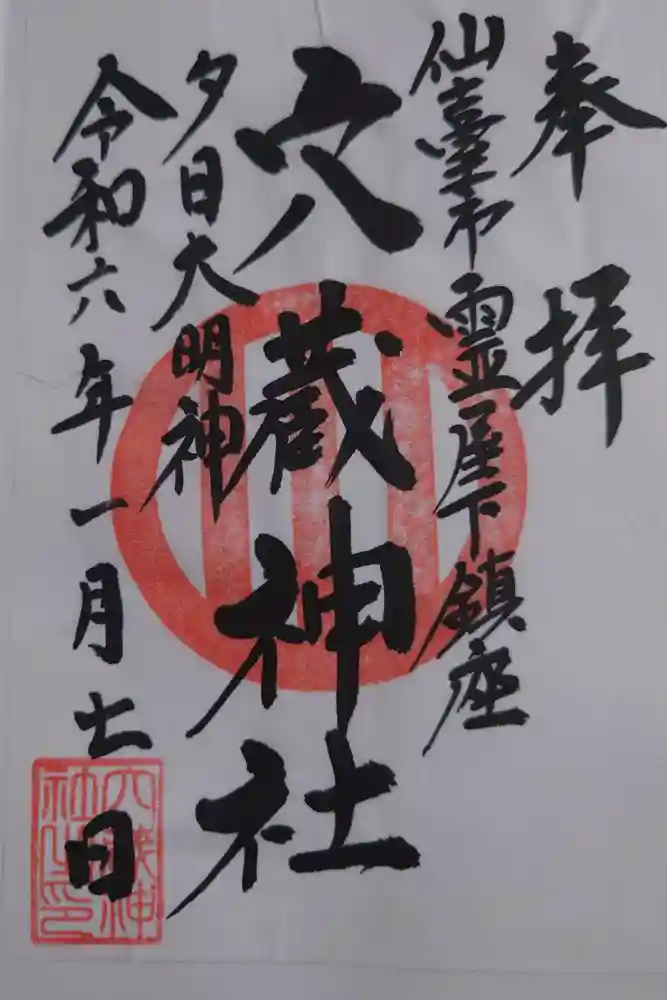 奉拝
仙臺市霊屋下鎮座
穴蔵神社
夕日大明神
令和六年一月十一日
穴蔵神
社之印